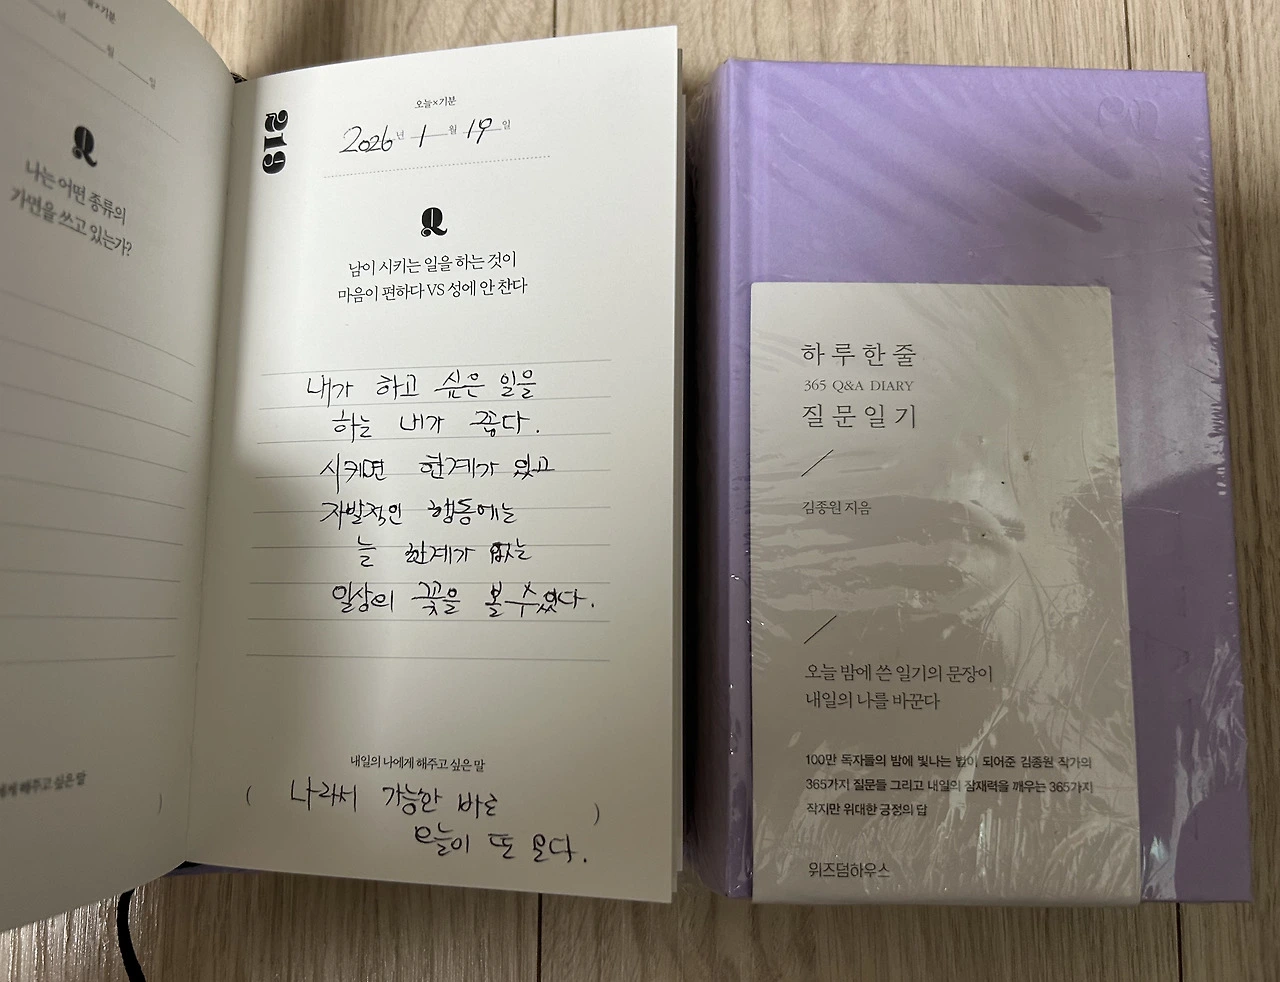 ×기분
년 월 일
Q
나는 어떤 종류의
가면을 쓰고 있는가?
게 해주고 싶은 말
)
219
오늘×기분
2026년 1월 19일
Q
남이 시키는 일을 하는 것이
마음이 편하다 VS 성에 안 찬다
내가 하고 싶은 일을
하는 내가 좋다.
시키면 한계가 있고
자발적인 행동에는
늘 한계가 없는
일상의 꽃을 볼 수 있다.
내일의 나에게 해주고 싶은 말
( 나라서 가능한 바로 )
오늘이 또 온다.
하루 한 줄
365 Q&A DIARY
질문 일기
김종원 지음
오늘 밤에 쓴 일기의 문장이
내일의 나를 바꾼다
100만 독자들의 밤에 빛나는 별이 되어준 김종원 작가의
365가지 질문들 그리고 내일의 잠재력을 깨우는 365가지
작지만 위대한 긍정의 답
위즈덤하우스